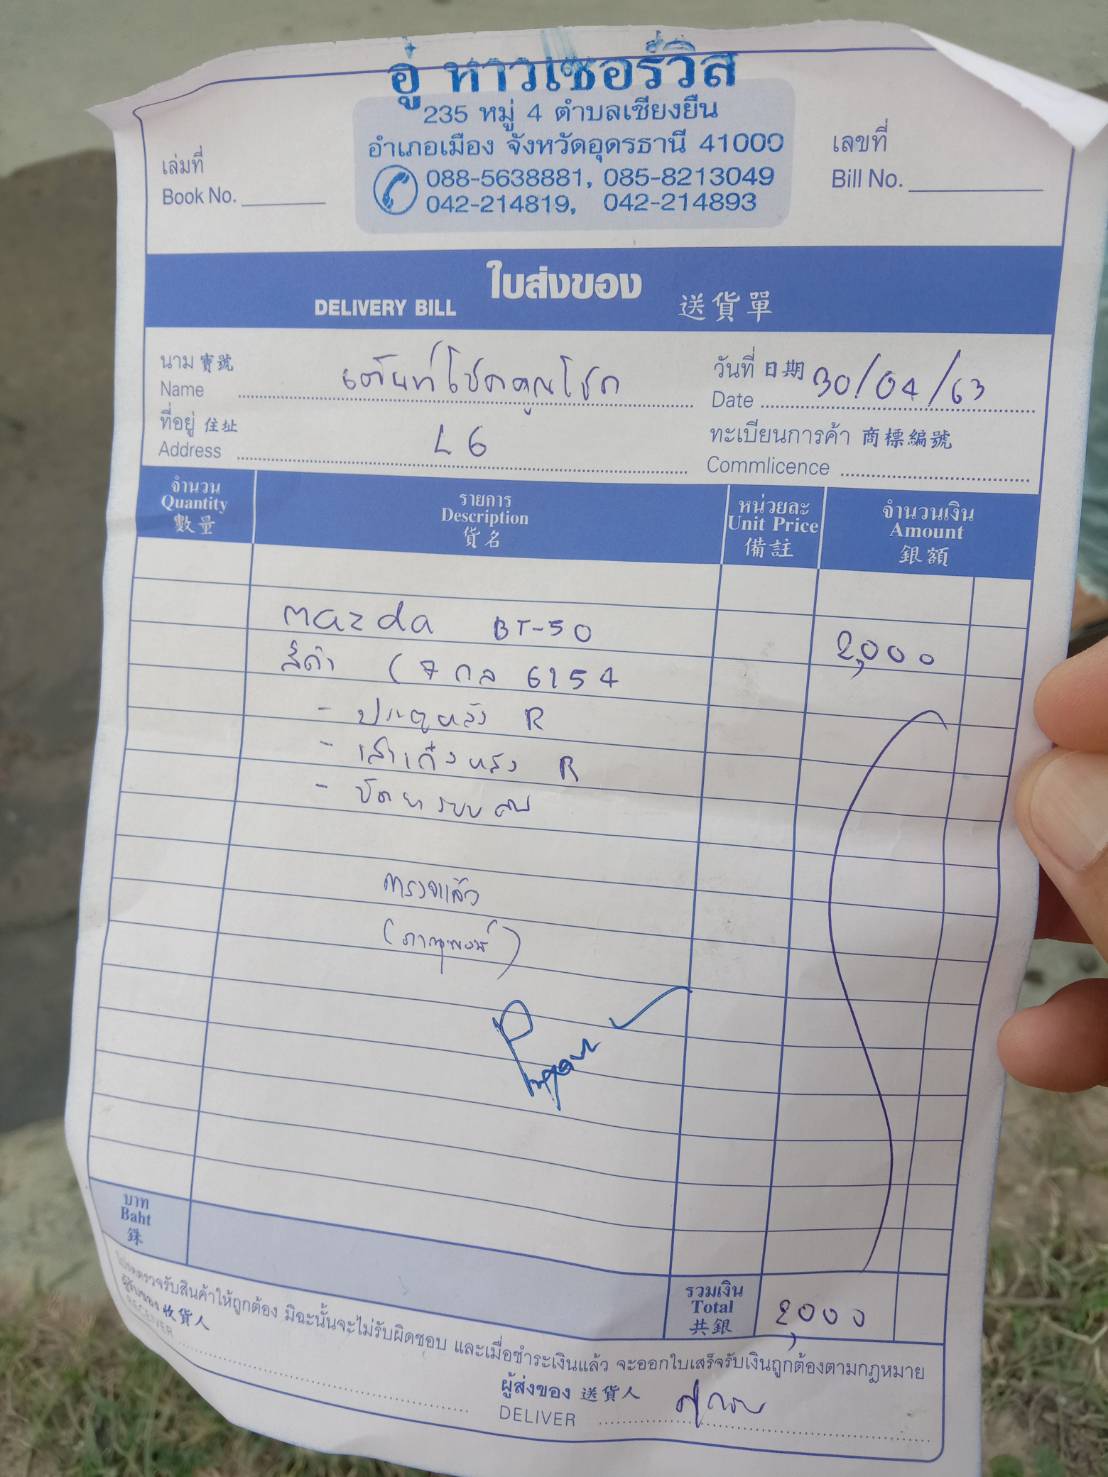 อู่ หาวเซอร์วิส
235 หมู่ 4 ตำบลเชียงยืน
อำเภอเมือง จังหวัดอุดรธานี 41000
088-5638881, 085-8213049
042-214819, 042-214893
เล่มที่
Book No.
เลขที่
Bill No.
ใบส่งของ
DELIVERY BILL 送貨單
นาม 寶號
Name เต็นท์โชคคูณโชค
วันที่ 日期 30/04/63
Date
ที่อยู่ 住址
Address L6
ทะเบียนการค้า 商標編號
Commlicence
จำนวน
Quantity
數量
รายการ
Description
貨名
หน่วยละ
Unit Price
備註
จำนวนเงิน
Amount
銀額
mazda BT-50 2,000
สีดำ (7 กล 6154
- ประตูหลัง R
- เสาเก๋งหลัง R
- ขัดยา
ตรวจแล้ว
(ภาณุพงษ์)
บาท
Baht
銖
รวมเงิน
Total
共銀
2,000
ตรวจรับสินค้าให้ถูกต้อง มิฉะนั้นจะไม่รับผิดชอบ และเมื่อชำระเงินแล้ว จะออกใบเสร็จรับเงินถูกต้องตามกฎหมาย
ผู้รับของ 收貨人
RECEIVER
ผู้ส่งของ 送貨人
DELIVER